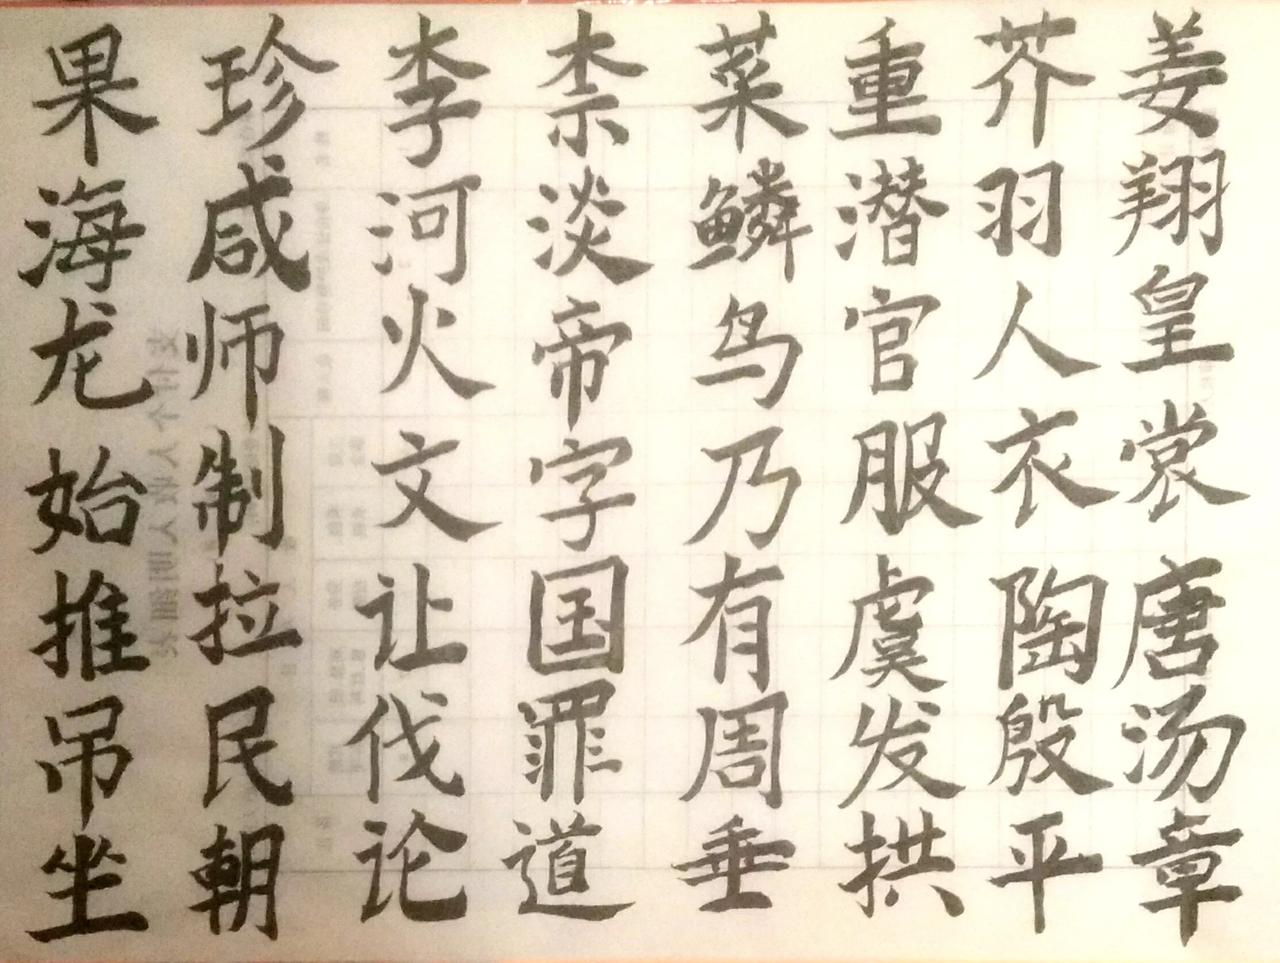 果珍李柰菜重芥姜
海咸河淡鳞潜羽翔
龙师火帝鸟官人皇
始制文字乃服衣裳
推拉让国有虞陶唐
吊民伐罪周发殷汤
坐朝论道垂拱平章